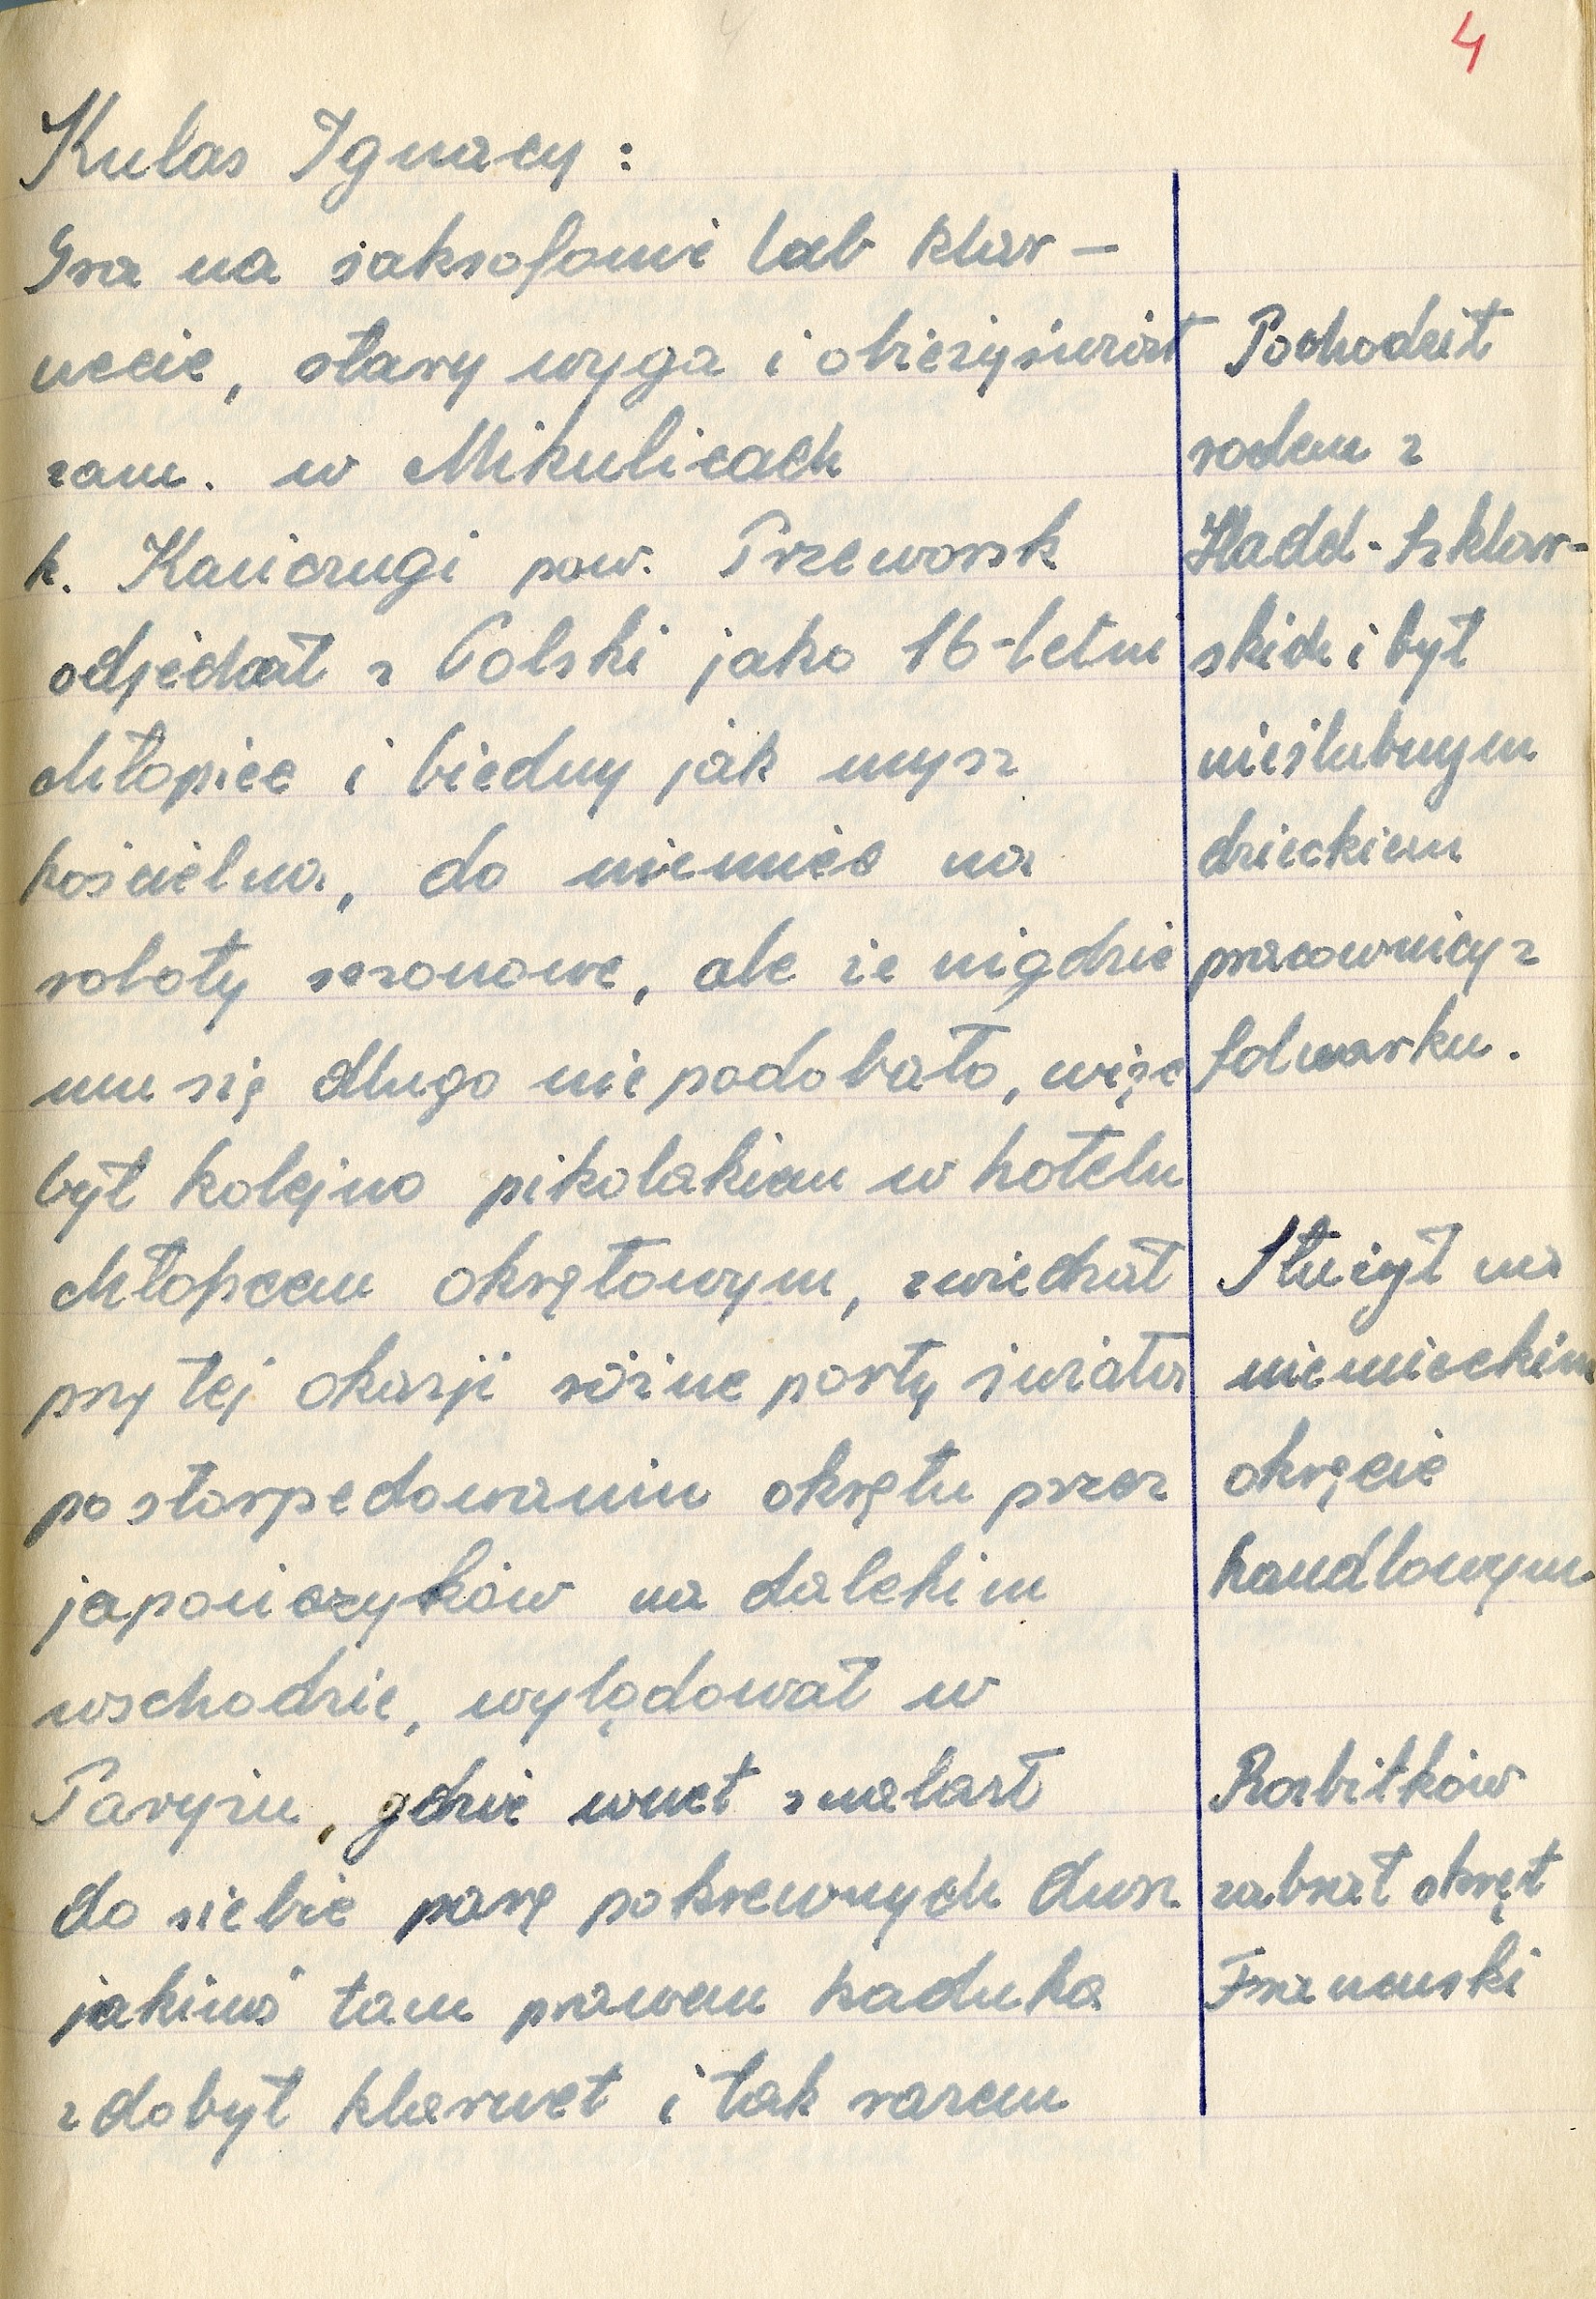 4
Kulas Ignacy:
Gra na saksofonie lub klar-
necie, stary wyga i obieżyświat
zam. w Mikulicach
k. Kańczugi pow. Przeworsk
odjechał z Polski jako 16-letni
chłopiec i biedny jak mysz
kościelna, do niemiec na
roboty sezonowe, ale że nigdzie
mu się długo nie podobało, więc
był kolejno pikolakiem w hotelu
chłopcem okrętowym, zwiedzał
przy tej okazji różne porty świata
po storpedowaniu okrętu przez
japończyków na dalekim
wschodzie, wylądował w
Paryżu, gdzie wnet znalazł
do siebie parę pokrewnych dusz
jakimś tam prawem kaduka
zdobył klarnet i tak razem
Pochodził
rodem z
Hadel-Szklar-
skich i był
nieślubnym
dzieckiem
pracownicy z
folwarku.
Służył na
niemieckim
okręcie
handlowym
Rozbitków
zabrał okręt
Francuski